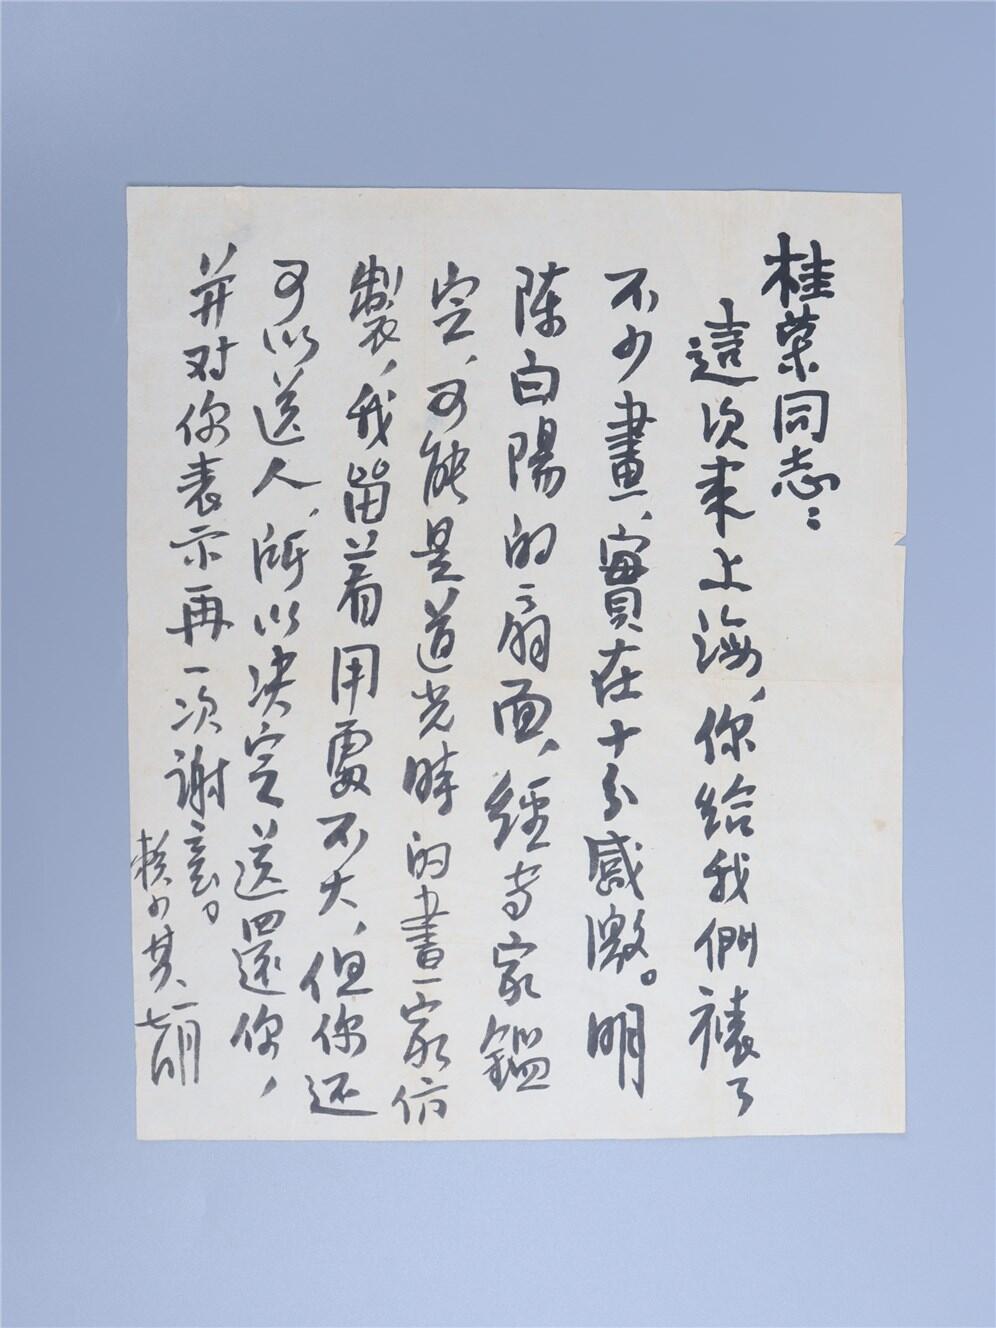 桂荣同志：
這次来上海，你給我們裱了
不少畫，實在十分感激。明
陈白陽的扇面，經专家鑑
定，可能是道光時的畫家仿
製，我留着用處不大，但你还
可以送人，所以决定送還你，
并对你表示再一次謝意。
赖少其